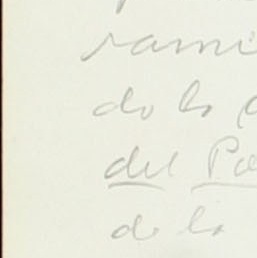 rami
do la
del Pa
de la